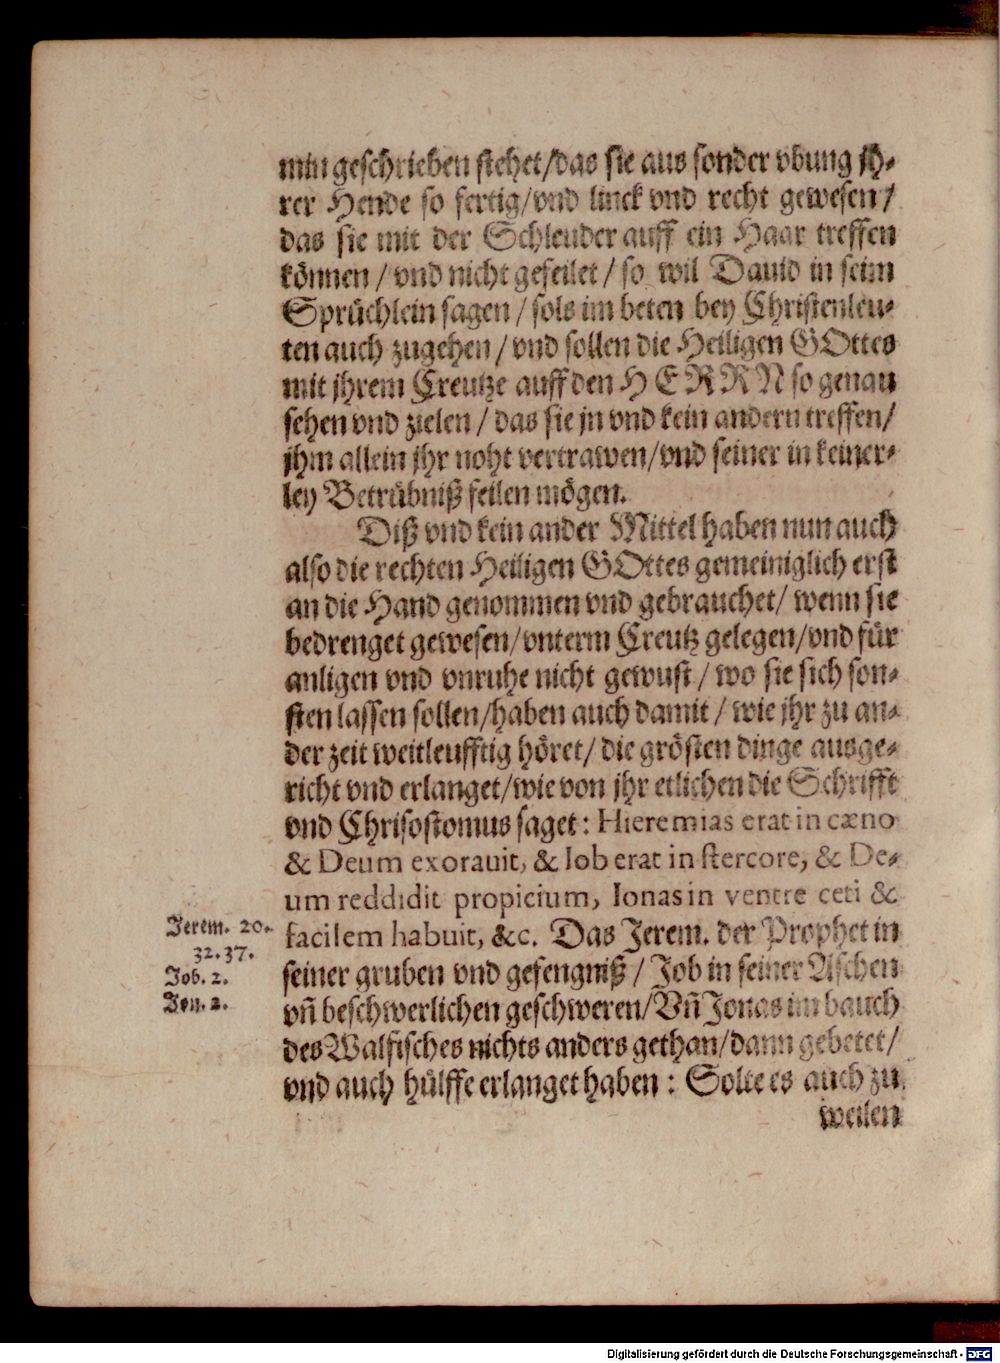 min geschrieben stehet/das sie aus sonder vbung jh-
rer Hende so fertig/vnd linck vnd recht gewesen/
das sie mit der Schleuder auff ein Haar treffen
können/vnd nicht gefeilet/so wil Dauid in seim
Sprüchlein sagen/sols im beten bey Christenleu-
ten auch zugehen/vnd sollen die Heiligen GOttes
mit jhrem Creutze auff den HERRN so genau
sehen vnd zielen/das sie jn vnd kein andern treffen/
jhm allein jhr noht vertrawen/vnd seiner in keiner-
ley Betrübniß feilen mögen.
Diß vnd kein ander Mittel haben nun auch
also die rechten Heiligen GOttes gemeiniglich erst
an die Hand genommen vnd gebrauchet/wenn sie
bedrenget gewesen/vnterm Creutz gelegen/vnd für
anligen vnd vnruhe nicht gewust/wo sie sich son-
sten lassen sollen/haben auch damit/wie jhr zu an-
der zeit weitleufftig höret/die grösten dinge ausge-
richt vnd erlanget/wie von jhr etlichen die Schrifft
vnd Chrisostomus saget: Hieremias erat in cæno
& Deum exorauit, & Iob erat in stercore, & De-
um reddidit propicium, Ionas in ventre ceti &
facilem habuit, &c. Das Jerem. der Prophet in
seiner gruben vnd gefengniß/Job in seiner Aschen
vñ beschwerlichen geschweren/Vñ Jonas im bauch
des Walfisches nichts anders gethan/dann gebetet/
vnd auch hülffe erlanget haben: Solte es auch zu
weilen
Jerem. 20.
32.37.
Job. 2.
Jon. 2.
Digitalisierung gefördert durch die Deutsche Forschungsgemeinschaft - DFG